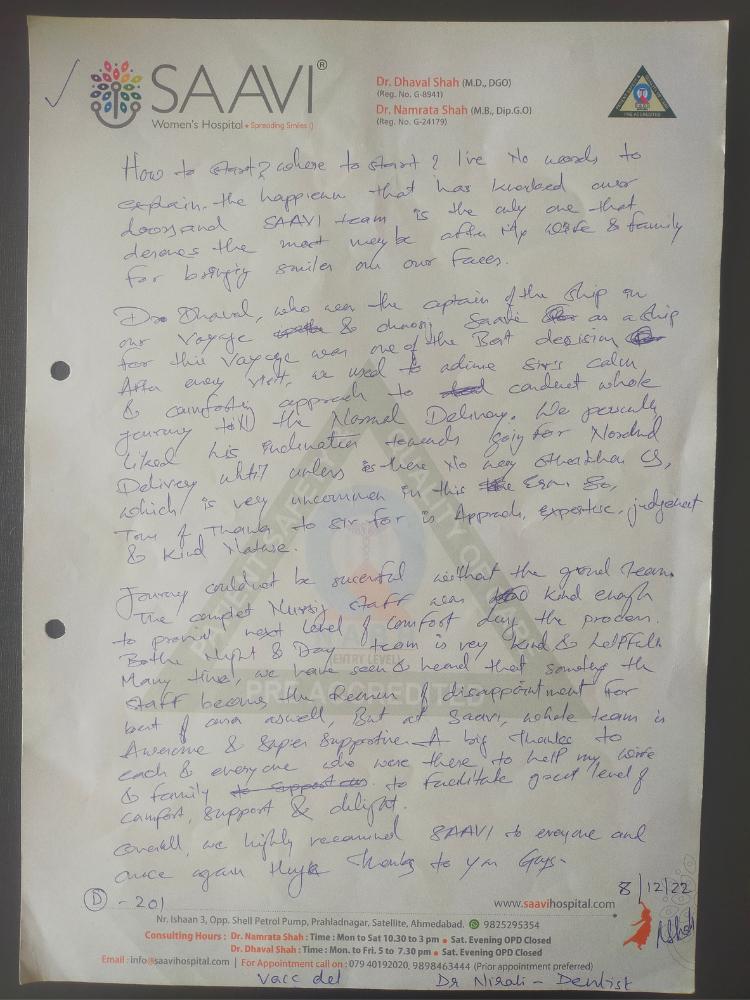 SAAVI®
Women's Hospital • Spreading Smiles :)
Dr. Dhaval Shah (M.D., DGO)
(Reg. No. G-8941)
Dr. Namrata Shah (M.B., Dip.G.O)
(Reg. No. G-24179)
PRE ACCREDITED
How to start? where to start? I've No words to
explain the happienn that has knocked over
doors and SAAVI team is the only one that
deserves the most maybe after My wife & family
for bringing smiles on our faces.
Dr. Dhaval, who was the captain of the ship in
our Voyage & chosing Saavi as a ship
for this Voyage was one of the Best decision
After every visit, we used to admire sir's calm
& comforting approach to conduct whole
journey till the Normal Delivery. We personally
liked his inclination towards going for Normal
Delivery until unless is there No way other than CS,
which is very uncommon in this Era. So,
Tons of Thanks to Sir for is Approach, expertise, judgement
& Kind Nature.
Journey could not be sucessful without the grond team.
The complet Nursing staff was kind enough
to provid next level of comfort during the process.
Bothe Night & Day team is very kind & helpfull.
Many time, we have seen & heard that someties the
staff becoms the Reason of disappointment for
best of ones aswell, But at Saavi, whole team is
Awesome & super supportive. A big Thanks to
each & everyone who were there to help my wife
& family to facilitate great level of
comfort, support & delight.
overall, we highly recommend SAAVI to everyone and
once again Huge Thanks to you Guys.
8/12/22
D - 201
www.saavihospital.com
Nr. Ishaan 3, Opp. Shell Petrol Pump, Prahladnagar, Satellite, Ahmedabad. 9825295354
Consulting Hours : Dr. Namrata Shah : Time : Mon to Sat 10.30 to 3 pm • Sat. Evening OPD Closed
Dr. Dhaval Shah : Time : Mon. to Fri. 5 to 7.30 pm • Sat. Evening OPD Closed
Email : info@saavihospital.com | For Appointment call on : 079 40192020, 9898463444 (Prior appointment preferred)
Vacc del Dr Nirali - Dentist
ENTRY LEVEL
PRE ACCREDITED